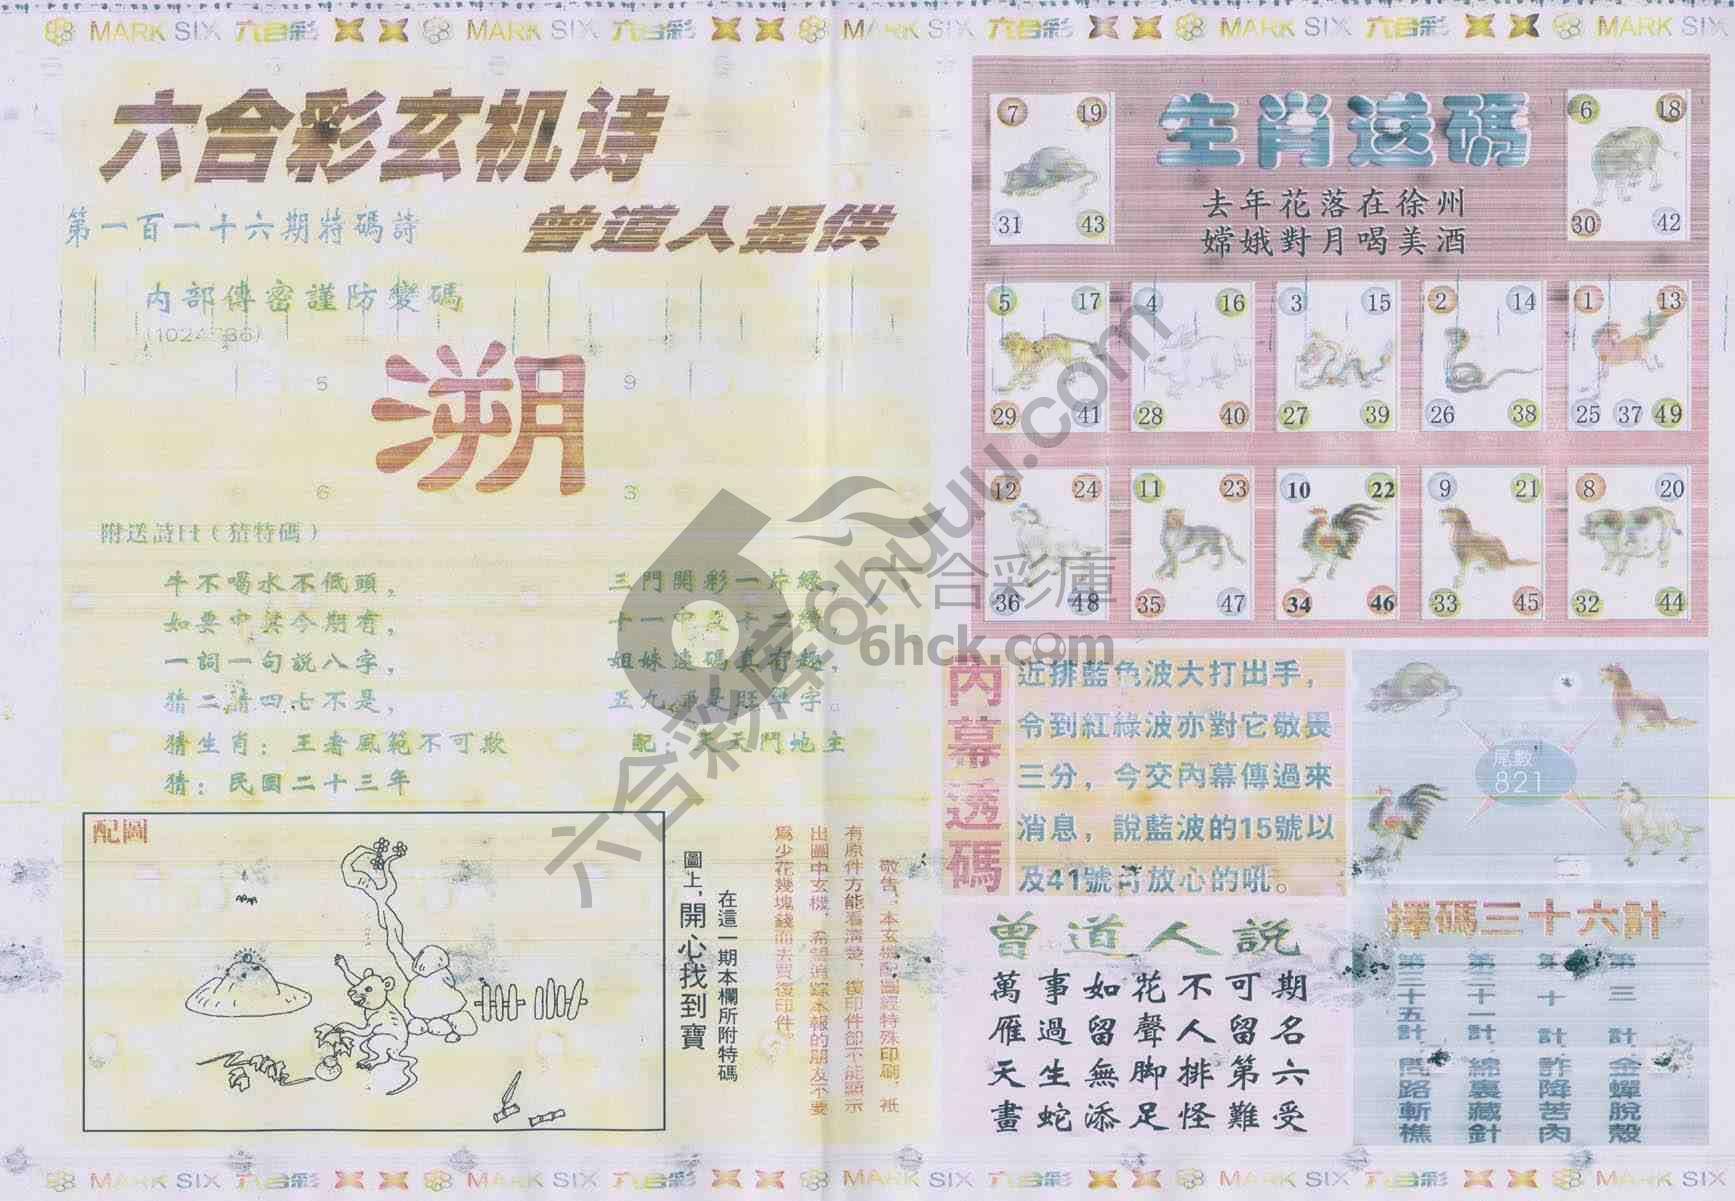 MARK SIX 六合彩 MARK SIX 六合彩 MARK SIX 六合彩 MARK SIX 六合彩 MARK SIX
六合彩玄机诗
曾道人提供
第一百一十六期特碼詩
內部傳密謹防變碼
5 9
溯
6 3
附送詩曰（猜特碼）
牛不喝水不低頭，
如要中獎今期有，
一詞一句說八字，
猜二猜四七不是，
猜生肖：王者風範不可欺
猜：民國二十三年
三門開彩一片綠，
十一中
姐妹 碼真有趣，
五九 是旺 字。
配：天天鬥地主
配圖
在這一期本欄所附特碼
圖上，開心找到寶
敬告，本玄機配圖經特殊印刷，祇
有原件方能看清楚，復印件卻不能顯示
出圖中玄機，希望追踪本報的朋友不要
為少花幾塊錢而去買復印件。
生肖透碼
去年花落在徐州
嫦娥對月喝美酒
7 19
31 43
6 18
30 42
5 17
29 41
4 16
28 40
3 15
27 39
2 14
26 38
1 13
25 37 49
12 24
36 48
11 23
35 47
10 22
34 46
9 21
33 45
8 20
32 44
內幕透碼
近排藍色波大打出手，
令到紅綠波亦對它敬畏
三分，今交內幕傳過來
消息，說藍波的15號以
及41號可放心的吼。
尾數
821
曾道人說
萬事如花不可期
雁過留聲人留名
天生無脚排第六
畫蛇添足怪難受
擇碼三十六計
第三計 金蟬脫殼
第十計 詐降苦肉
第三十一計 綿裏藏針
第三十五計 問路斬樵
六合彩库 6hkuuu.com
六合彩庫
6hck.com
MARK SIX 六合彩 MARK SIX 六合彩 MARK SIX 六合彩 MARK SIX 六合彩 MARK SIX